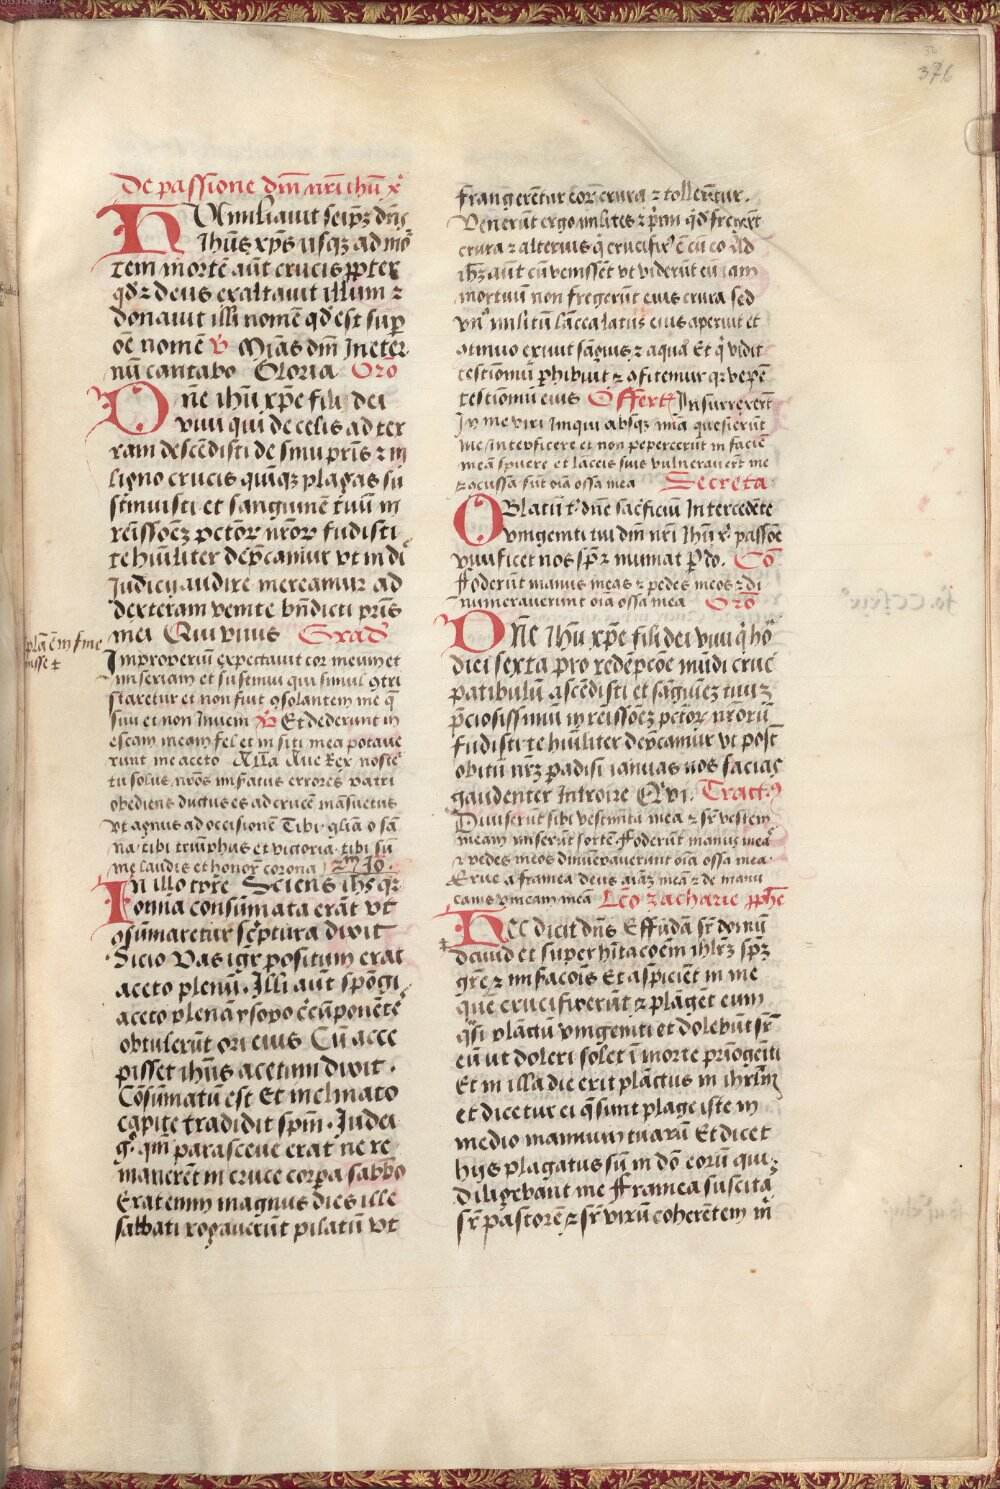 376
De passione dn̄i nr̄i ihū xͥ
HUmiliavit seip̄ȝ dn̄s
Ihūs xp̄s usqȝ ad mo᷑
tem mortē aūt crucis ꝓpter
qd̄ ⁊ deus exaltavit illum ⁊
donavit illi nomē qd̄ est sup̄
oē nomē ℣ Mīas dn̄i In eter
nū cantabo Gloria Orō
Dn̄e ihū xp̄e fili dei
vivi qui de celis ad ter
ram descēdisti de sinu pr̄is ⁊ in
ligno crucis quīqȝ plagas su
stinuisti et sanguinē tuū in
remissōeȝ pctor̄ nr̄or̄ fudisti
te hūiliter dep̄camur ut in di͡e
Judicij audire mereamur ad
dexteram venite bn̄dicti pr̄is
mei Qui vivis Grad̄
Improperiū expectavit cor meum et
miseriam et sustinui qui simul ꝯtri
staretur et non fuit ꝯsolantem me q̄
sivi et non Inveni ℣ Et dederunt in
escam meam fel et in siti mea potave
runt me aceto Alla Ave Rex noster
tu solus nr̄os misertus errores patri
obediens ductus es ad crucē māsuetus
ut agnus ad occisionē Tibi glīa osān
na tibi triūphus et victoria tibi sum̄
me laudis et honor̄ corona ⁊m Jo.
In illo tp̄re Sciens ihs̄ qꝛ
omnia consūmata erāt vt
ꝯsūmaretur sc̄ptura dixit
Sicio Vas igr̄ positum erat
aceto plenū. Illi aūt spōgi
aceto plenā ysopo c̄cūponētes
obtulerūt ori eius Cū acce
pisset ihūs acetum dixit.
Cōsūmatū est Et inclinato
capite tradidit spm̄. Judei
gͦ qm̄ parasceve erat ne re
manerēt in cruce corp̄a sabbo
Erat enim magnus dies ille
sabbati rogaverūt pilatū vt
frangerētur eor̄ crura ⁊ tollerētur.
Venerūt ergo milites ⁊ p̄mi qd̄ fregerūt
crura ⁊ alterius q̄ crucifix᷑ ē cū eo Ad
ihȝ aūt cū venissēt vt viderūt eū iam
mortuū non fregerūt eius crura sed
vnꝰ militū lācea latus eius aperuit et
ꝯtinuo exivit sāguis ⁊ aqua Et q̄ vidit
testimoniū ꝑhibuit
testimoniū eius Offert᷑ Insurrexerūt
In me viri Iniqui absqȝ mīa quesierūt
me Interficere et non pepercerūt in faciē
meā spuere et lāceis suis vulneraverūt me
⁊ ꝯcussa sūt oīa ossa mea Secreta
OBlatū t᷑ dn̄e sac̄ficiū Intercedēte
vnigeniti tui dn̄i nr̄i Ihū xͥ passōe
vivificet nos sp̄ ⁊ muniat P do. Cō
Foderūt manus meas ⁊ pedes meos ⁊ di
numeraverunt oīa ossa mea Orō
Dn̄e Ihū xp̄e fili dei vivi q̄ ho
diei sexta pro redēpcōe mūdi cruc᷑
patibulū ascēdisti et sāguīeȝ tuūȝ
p̄ciosissimū in remissōeȝ pctor̄ nr̄orū
fudisti te hūiliter dep̄camur vt post
obitū nr̄ȝ padisi ianuas nos facias
gaudenter Introire Qui. Tractꝰ
Diviserūt sibi vestimēta mea ⁊ sr̄ vestem
meam miserūt sortē Foderūt manus meas
⁊ pedes meos dinūeraverunt oīa ossa mea
Erue a framea deus aīaȝ meā ⁊ de manu
canis vnicam meā Lc̄o zacharie ꝓphe
HEc dicit dn̄s Effūdā sr̄ domū
david et super hītacoēm ihlr̄ȝ sp̄ȝ
gr̄e ⁊ misacōis Et aspiciēt in me
quē crucifixerūt ⁊ plāgēt eum
q̄si plāctū vnigeniti et dolebūt sr̄
eū ut doleri solet ī morte prīogēiti
Et in illa die erit plāctus in ihrlm̄
et dicetur ei q̄ sunt plage iste in
medio manuum tuarū Et dicet
hijs plagatus sū in dō eorū quiȝ
diligebant me Framea suscita
sr̄ pastorē ⁊ sr̄ virū coherētem m͡i